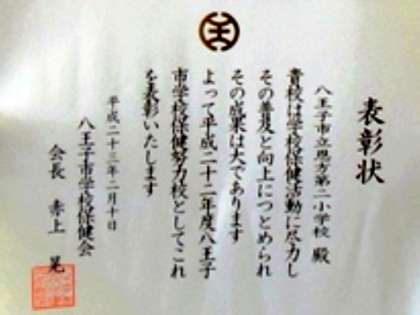 表彰状
八王子市立恩方第二小学校 殿
貴校は学校保健活動に尽力し
その普及と向上につとめられ
その成果は大であります
よって平成二十二年度八王子
市学校保健努力校としてこれ
を表彰いたします
平成二十三年二月十日
八王子市学校保健会
会長 赤上 晃